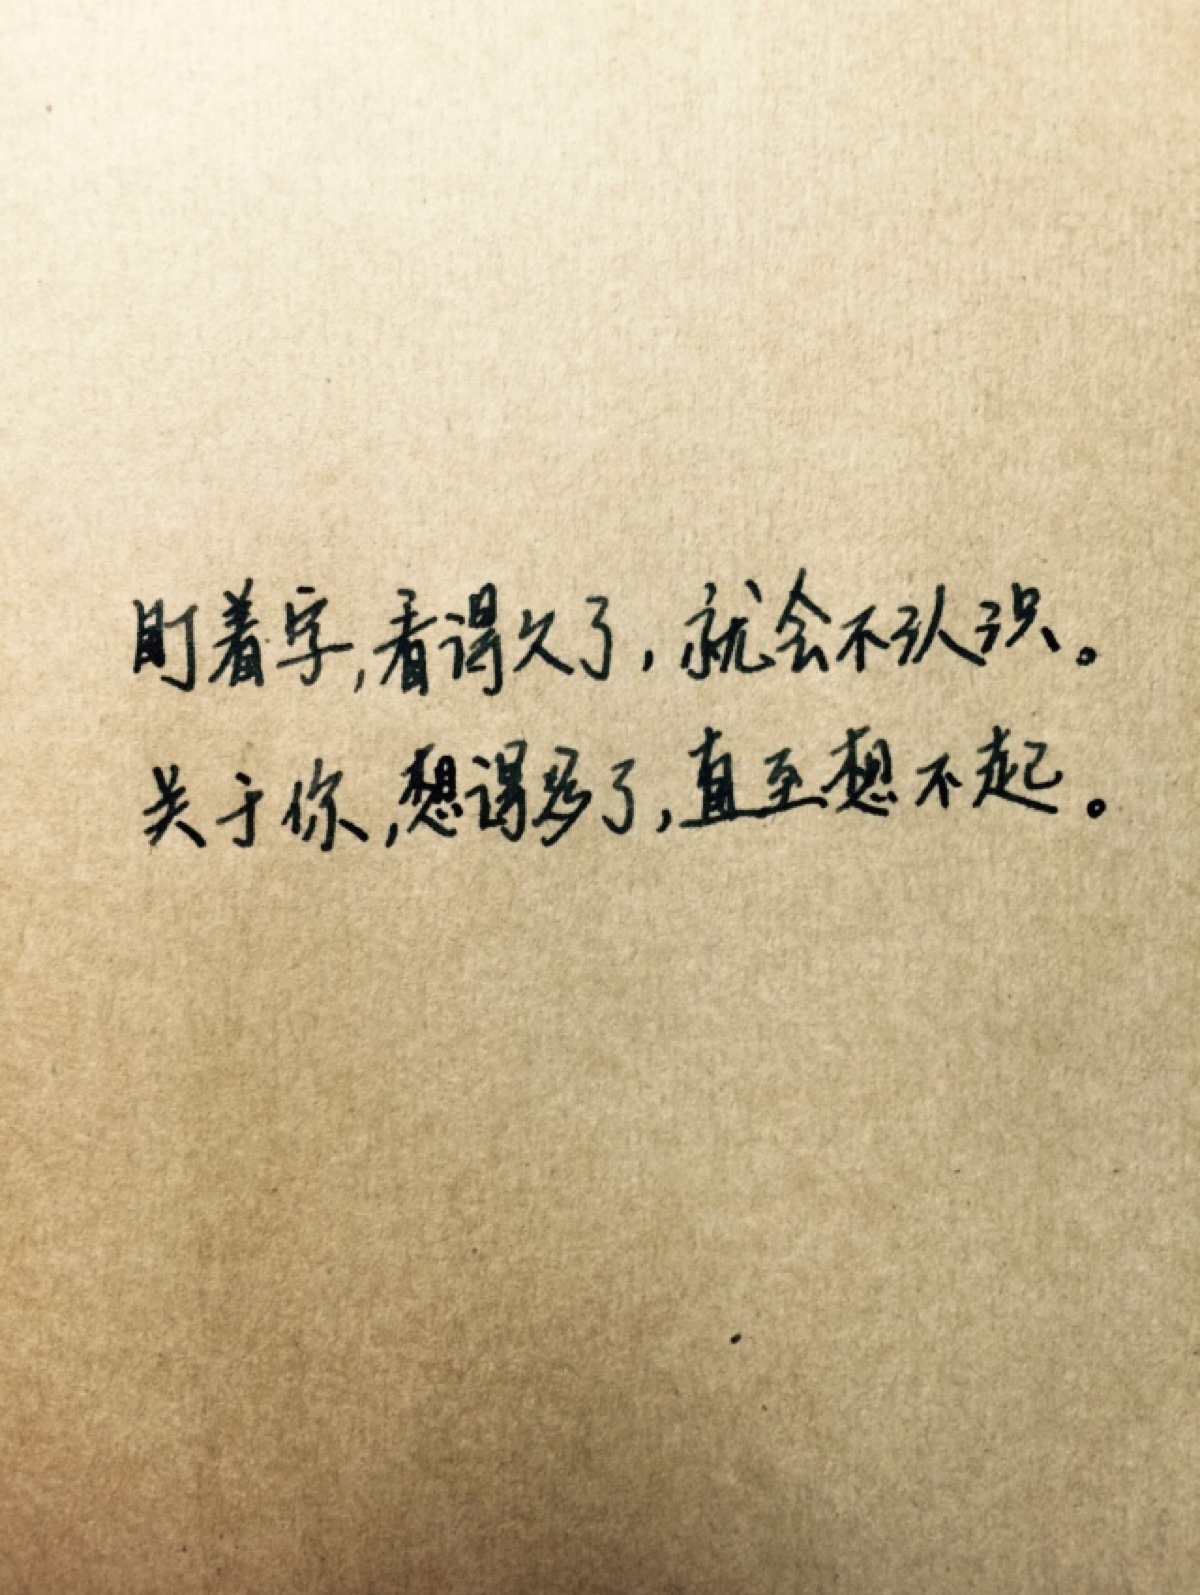 盯着字,看得久了,就会不认识。
关于你,想得多了,直至想不起。